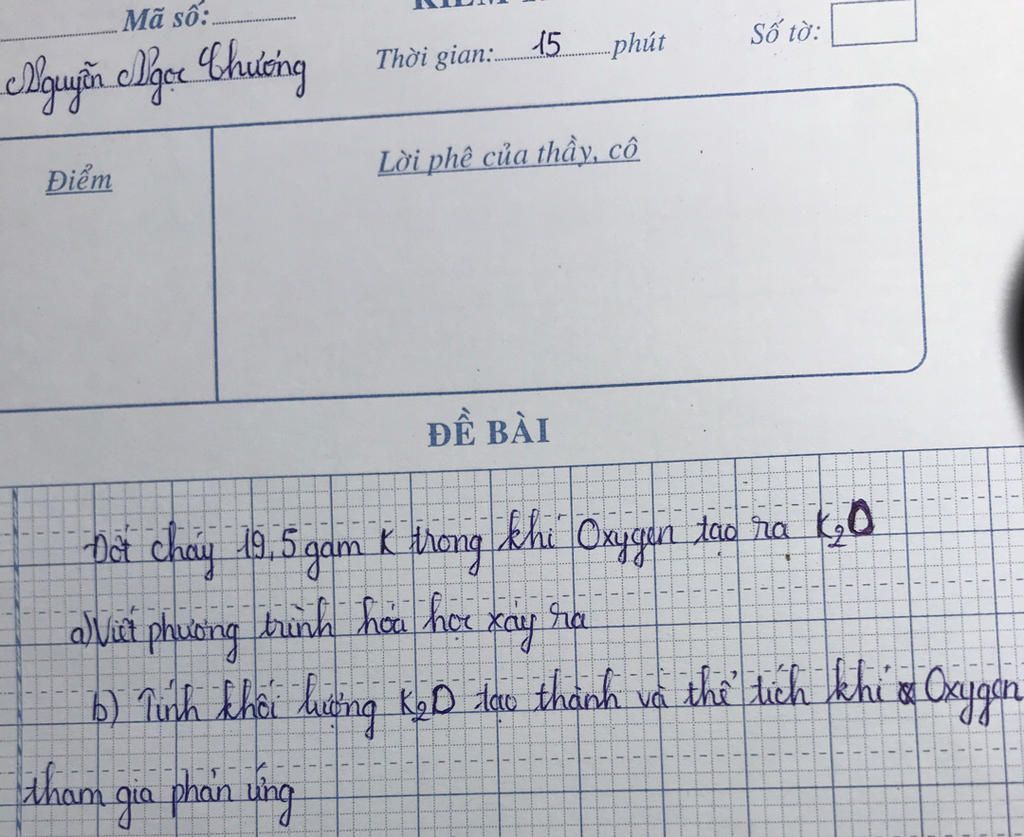 Mã số:
Nguyễn Ngọc Chương
Thời gian: 15 phút
Số tờ:
Điểm
Lời phê của thầy, cô
ĐỀ BÀI
Đốt cháy 19,5 gam K trong khí Oxygen tạo ra K₂O
a) Viết phương trình hóa học xảy ra
b) Tính khối lượng K₂O tạo thành và thể tích khí Oxygen
tham gia phản ứng